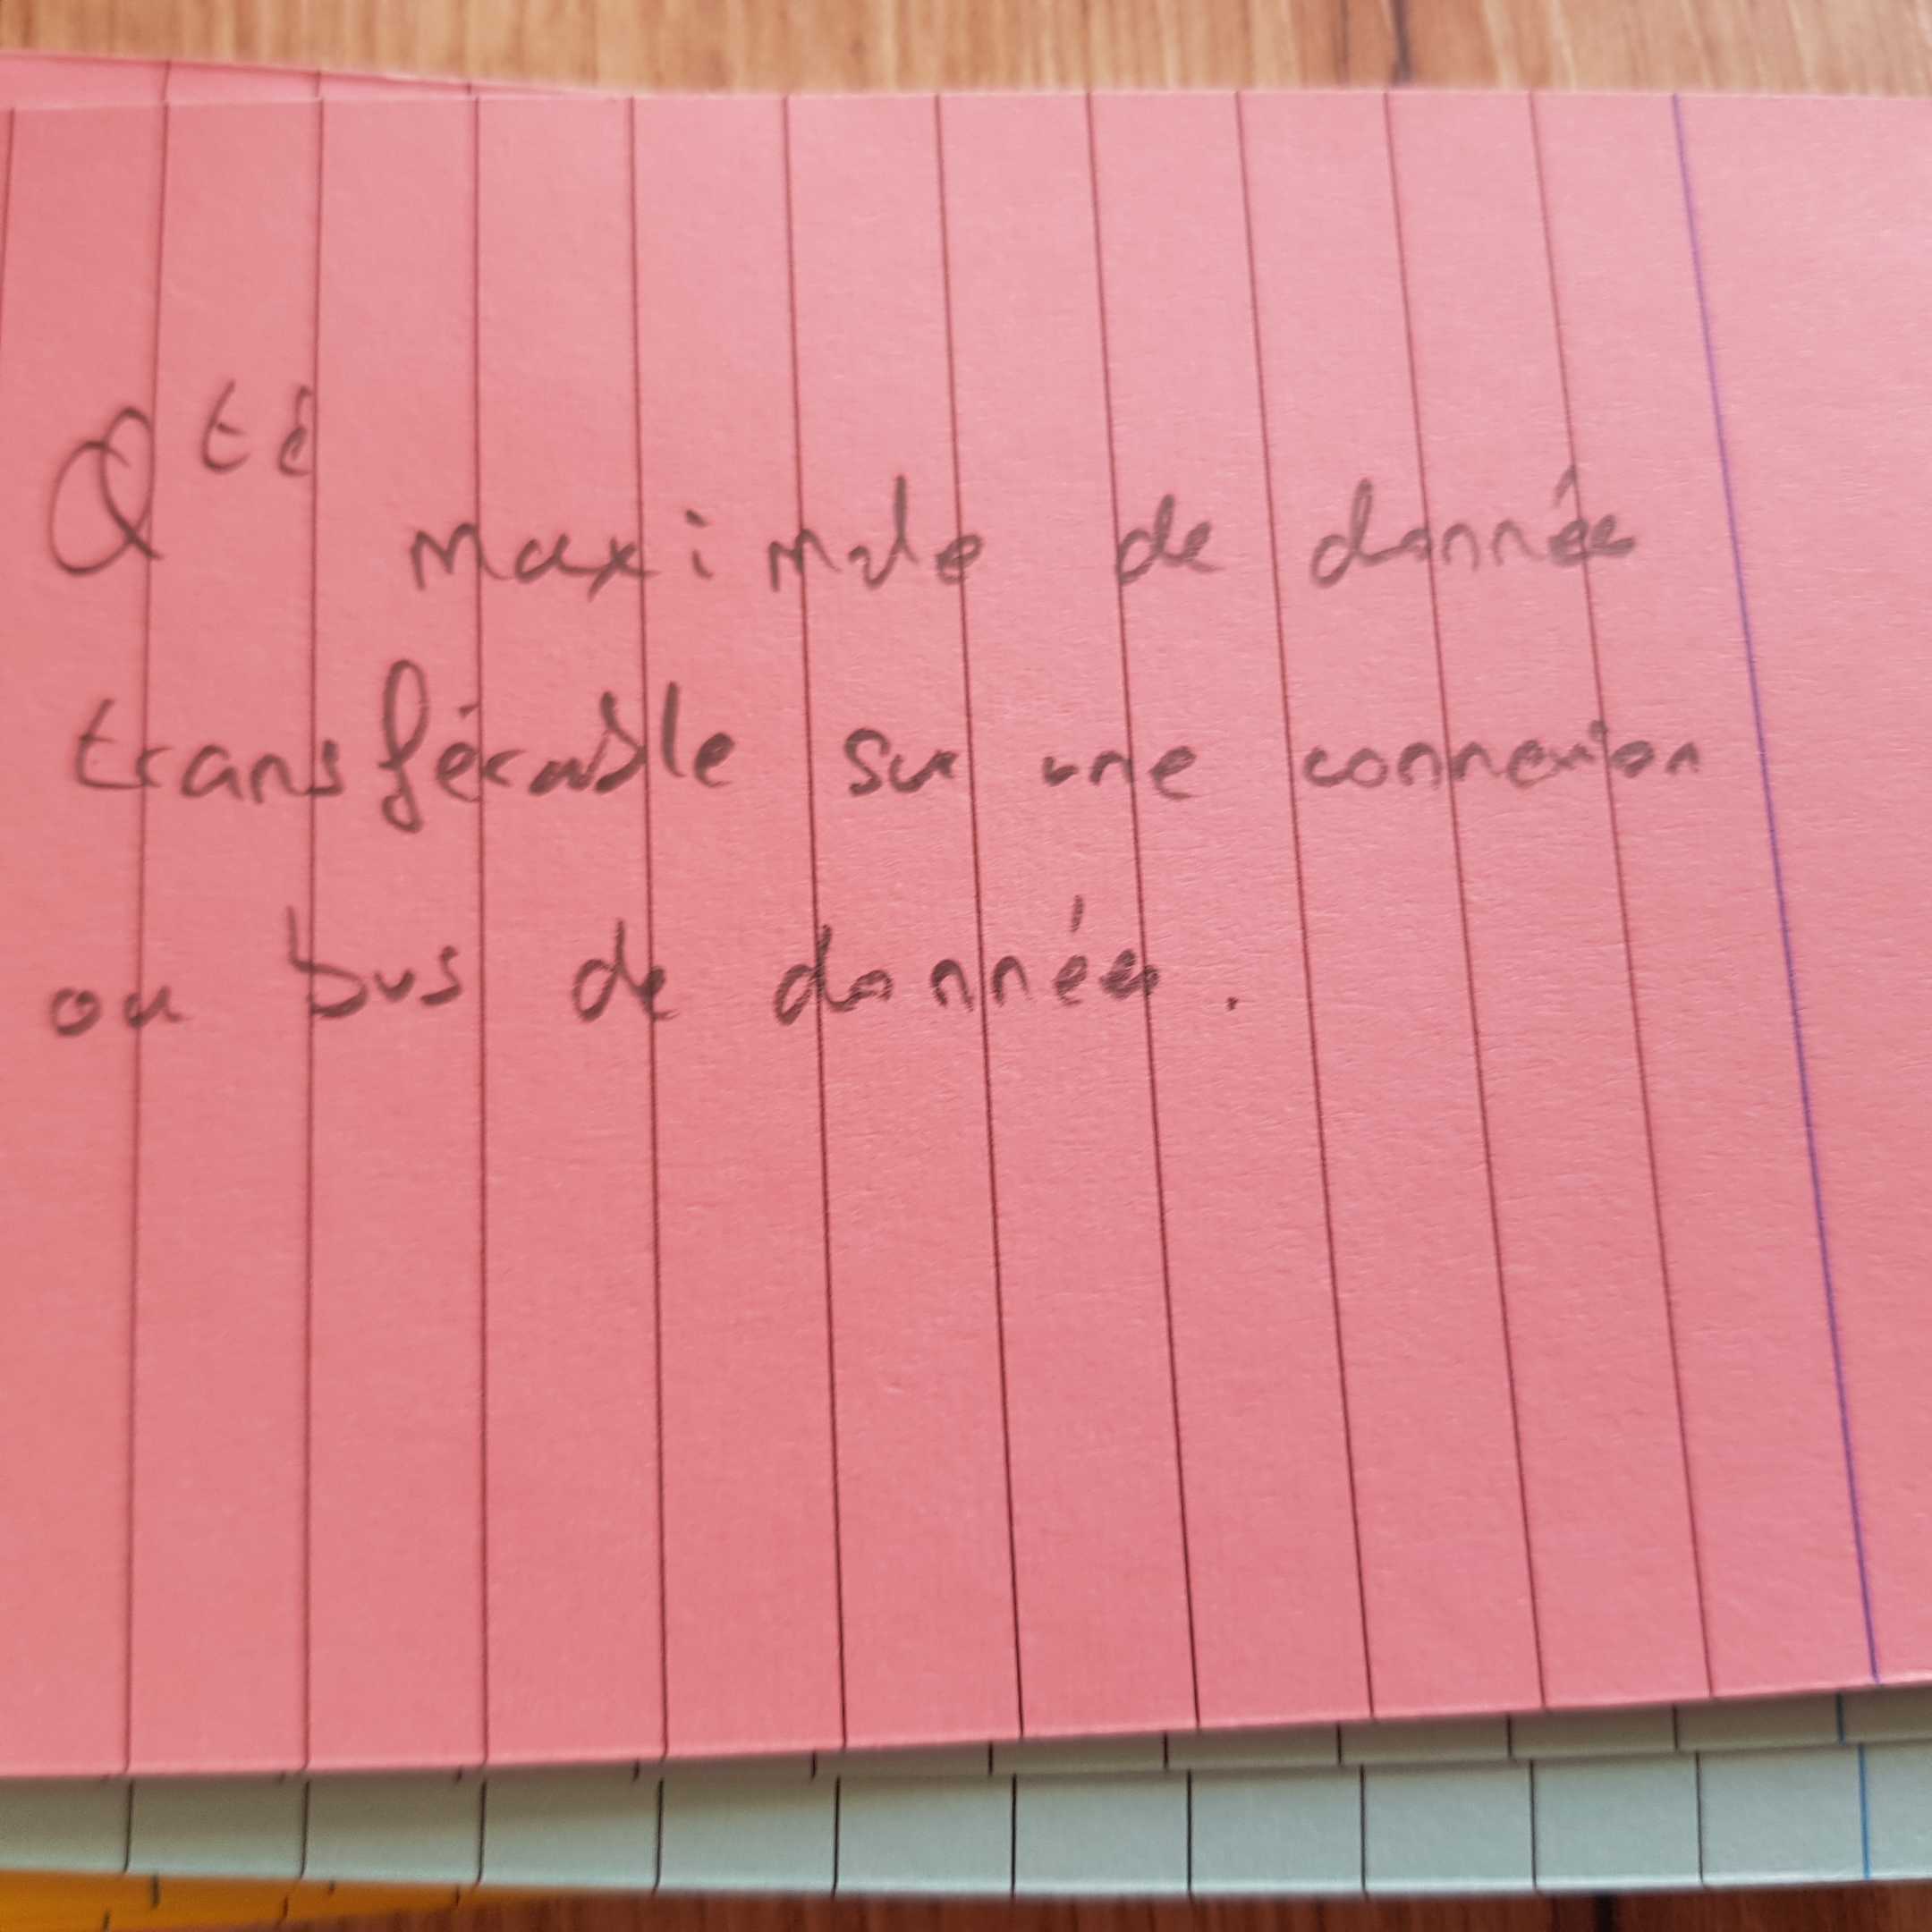 Qté maximale de données
transférable sur une connexion
ou bus de données.